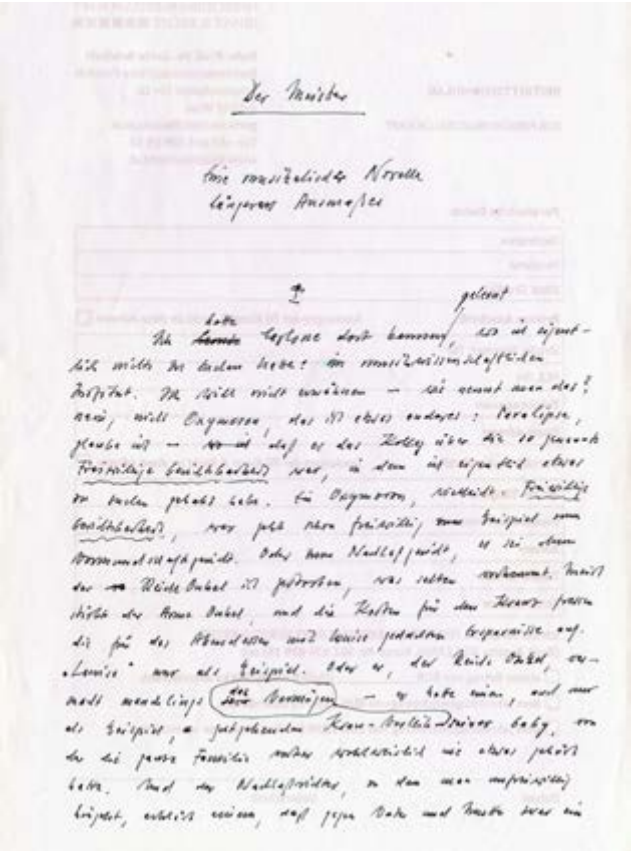 Der Meister
Eine musikalische Novelle
längeren Ausmaßes
I
hatte gelernt
Ich konnte dort kennen, wo ich eigent-
lich nichts zu suchen hatte: im musikwissenschaftlichen
Institut. Ich will nicht erwähnen — wie nennt man das?
nein, nicht Oxymoron, das ist etwas anderes: Paralipse,
glaube ich — daß es das Kolleg über die so genannte
Freiwillige Gerichtsbarkeit war, in dem ich eigentlich etwas
zu suchen gehabt habe. Ein Oxymoron, vielleicht. Freiwillige
Gerichtsbarkeit, wer geht schon freiwillig zum Beispiel zum
Vormundschaftsgericht. Oder zum Nachlaßgericht, es sei denn
der Reiche Onkel ist gestorben, was selten vorkommt. Meist
stirbt der Arme Onkel, und die Kosten für den Kranz fressen
die für das Abendessen mit Louise gedachten Ersparnisse auf.
„Louise“ nur als Beispiel. Oder er, der Reiche Onkel, ver-
macht meuchlings das Vermögen — er habe einen, auch nur
als Beispiel, gutgehenden Kran-Verleih seiner baby, von
der die ganze Familie vorher wohlweislich nie etwas gehört
hatte. Und der Nachlaßrichter, zu dem man unfreiwillig
hingeht, erklärt einem, daß gegen Vater und Mutter zwar ein